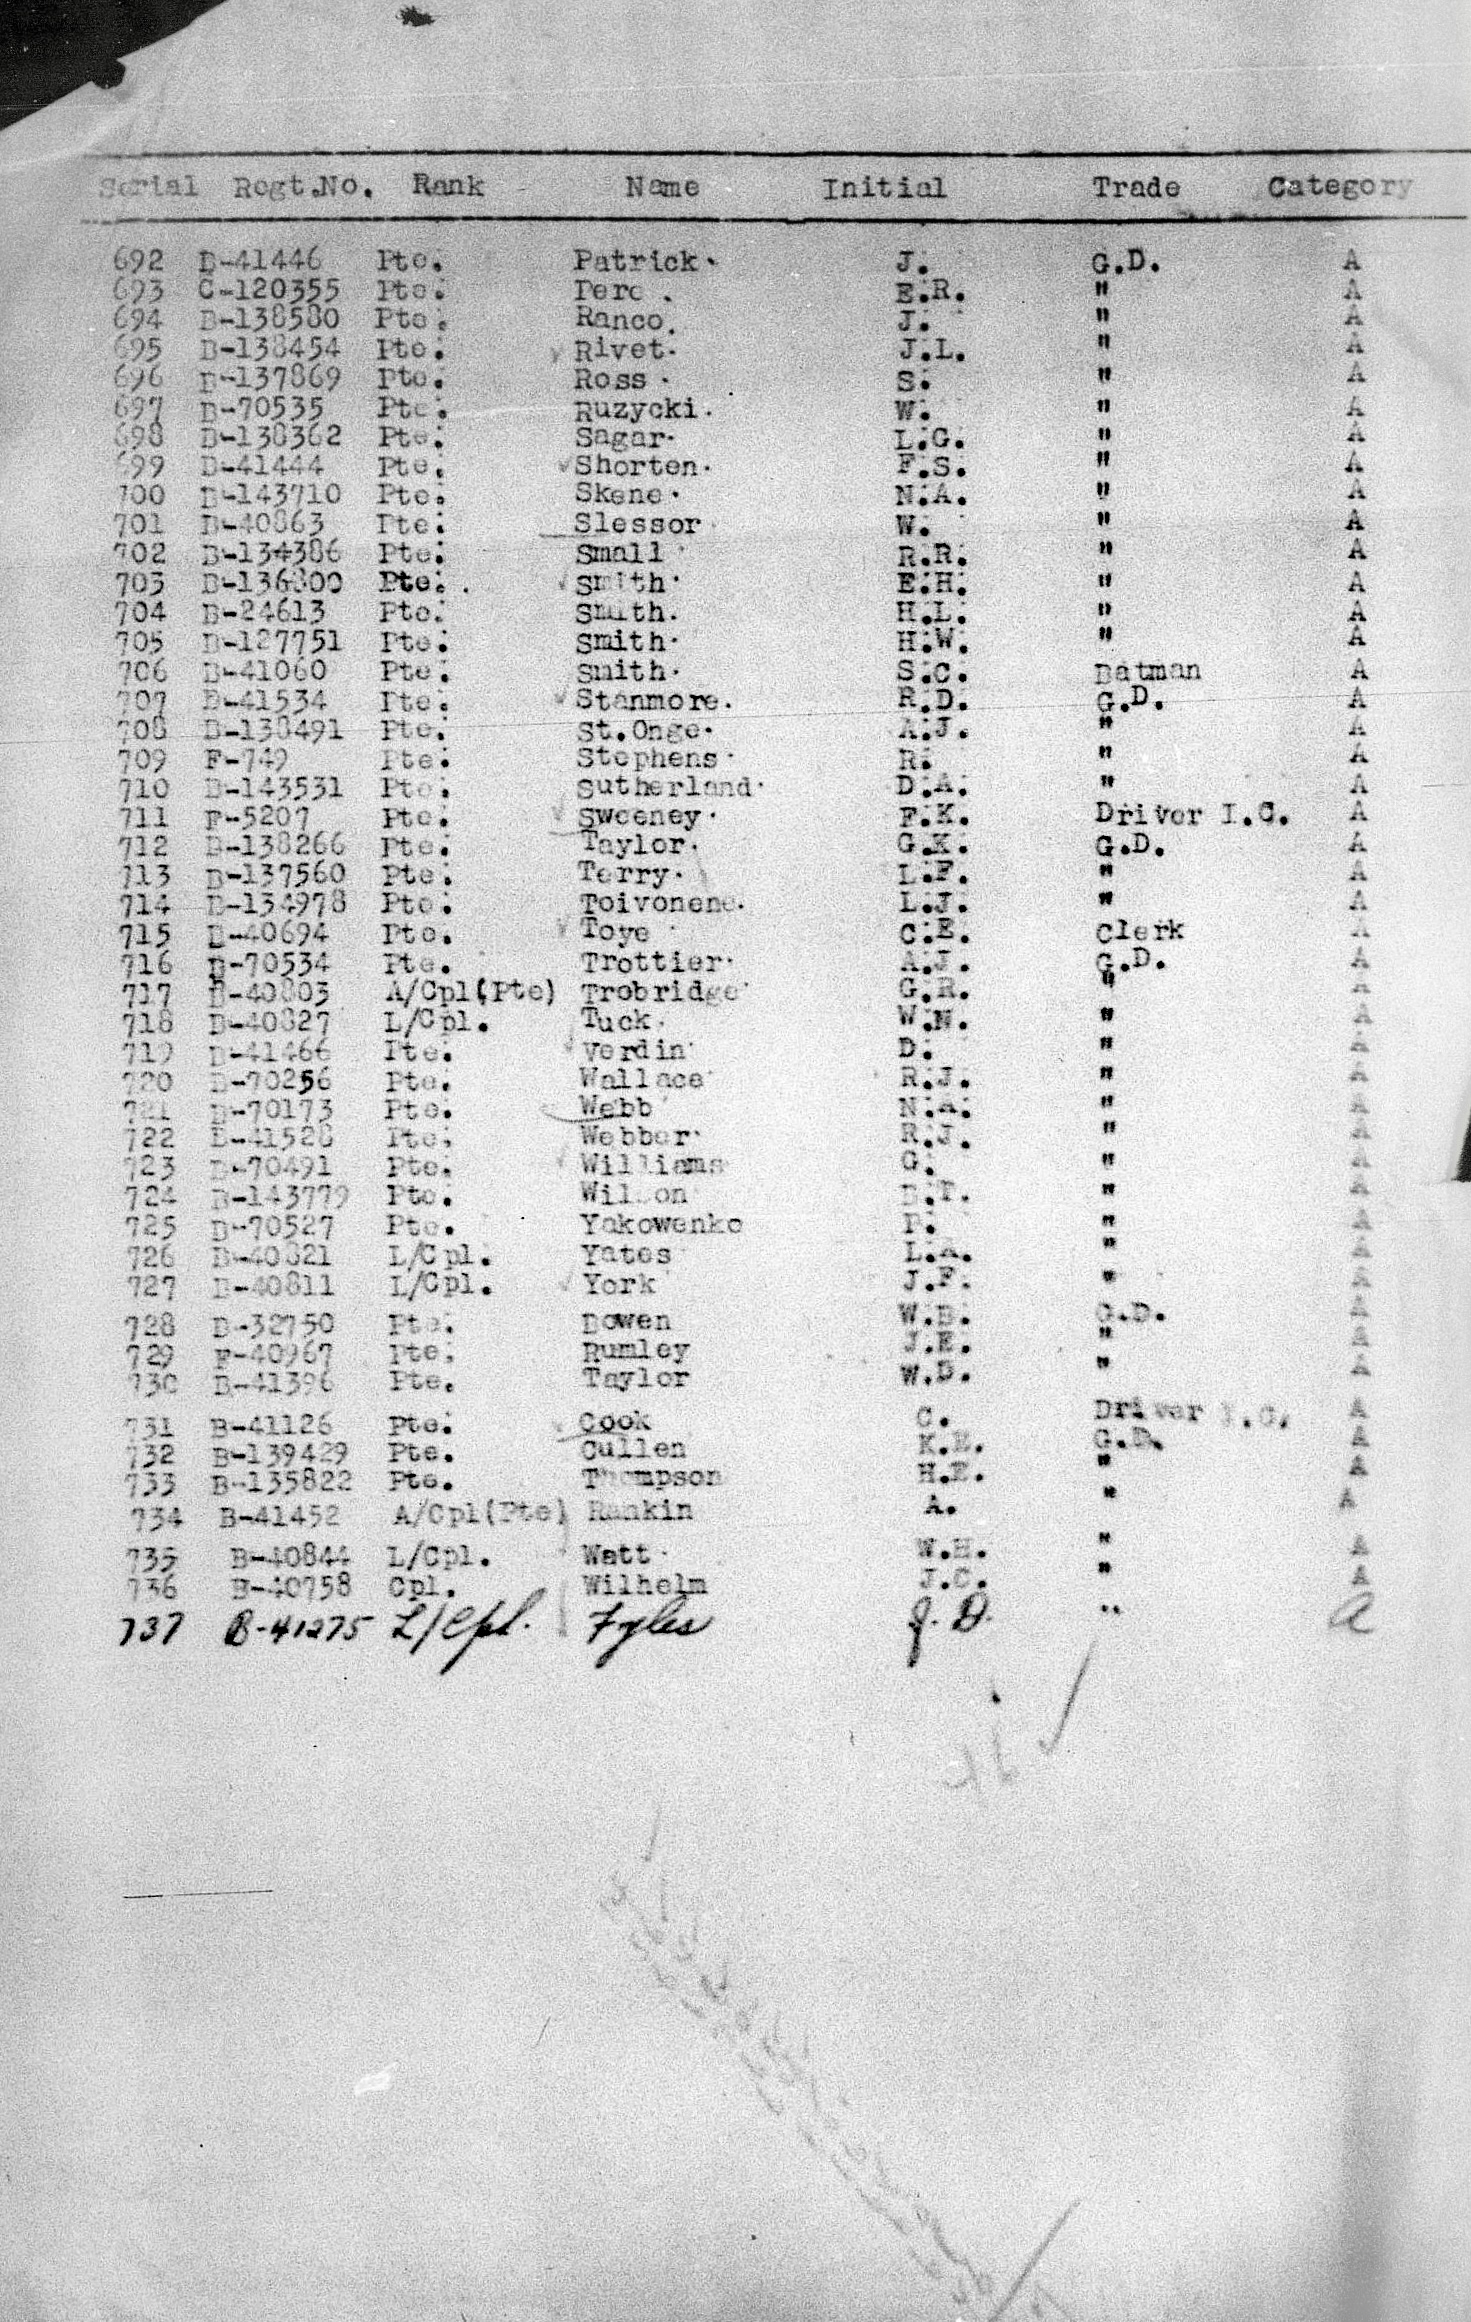 Serial Regt.No. Rank Name Initial Trade Category
692 B-41446 Pte. Patrick. J. G.D. A
693 C-120355 Pte. Pere. E.R. " A
694 B-138580 Pte. Ranco. J. " A
695 B-138454 Pte. Rivet. J.L. " A
696 B-137869 Pte. Ross. S. " A
697 B-70535 Pte. Ruzycki. W. " A
698 B-138362 Pte. Sagar. L.G. " A
699 B-41444 Pte. Shorten. F.S. " A
700 B-143710 Pte. Skene. N.A. " A
701 B-40863 Pte. Slessor W. " A
702 B-134386 Pte. Small R.R. " A
703 B-136800 Pte. Smith. E.H. " A
704 B-24613 Pte. Smith. H.L. " A
705 B-127751 Pte. Smith. H.W. " A
706 B-41060 Pte. Smith. S.C. Batman A
707 B-41534 Pte. Stanmore. R.D. G.D. A
708 B-138491 Pte. St.Onge. A.J. " A
709 F-749 Pte. Stephens. R. " A
710 B-143531 Pte. Sutherland. D.A. " A
711 F-5207 Pte. Sweeney. F.K. Driver I.C. A
712 B-138266 Pte. Taylor. G.K. G.D. A
713 B-137560 Pte. Terry. L.F. " A
714 B-134978 Pte. Toivonene. L.J. " A
715 B-40694 Pte. Toye C.E. Clerk A
716 B-70534 Pte. Trottier. A.J. G.D. A
717 B-40803 A/Cpl(Pte) Trobridge G.R. " A
718 B-40827 L/Cpl. Tuck. W.N. " A
719 B-41466 Pte. Verdin D. " A
720 B-70256 Pte. Wallace R.J. " A
721 B-70173 Pte. Webb N.A. " A
722 B-41528 Pte. Webber. R.J. " A
723 B-70491 Pte. Williams G. " A
724 B-143779 Pte. Wilson " A
725 B-70527 Pte. Yakowenko P. " A
726 B-40821 L/Cpl. Yates L.A. " A
727 B-40811 L/Cpl. York J.F. " A
728 B-32750 Pte. Bowen W.B. G.D. A
729 F-40967 Pte. Rumley J.E. " A
730 B-41396 Pte. Taylor W.D. " A
731 B-41126 Pte. Cook C. Driver I.C. A
732 B-139429 Pte. Cullen K.E. G.D. A
733 B-135822 Pte. Thompson H.E. " A
734 B-41452 A/Cpl(Pte) Rankin A. " A
735 B-40844 L/Cpl. Watt. W.H. " A
736 B-40758 Cpl. Wilhelm J.C. " A
737 B-41275 L/Cpl. Fyles J.D. " A